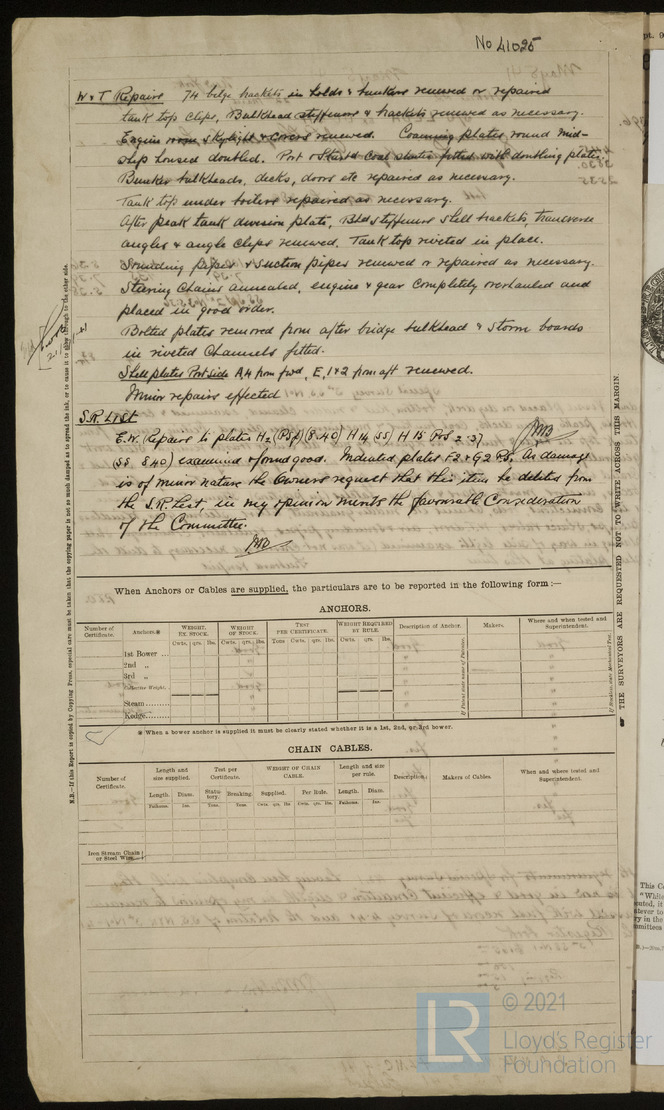 No 41025
W & T Repairs 74 bilge brackets in holds & bunkers renewed or repaired
tank top clips, Bulkhead stiffeners & brackets renewed as necessary.
Engine room skylight & covers renewed. Coaming plates round mid-
ship housed doubled. Port & Starbd Coal shutes fitted with doubling plates,
Bunker bulkheads, decks, doors etc repaired as necessary.
Tank top under boilers repaired as necessary.
After peak tank division plate, Bhd stiffeners shell brackets, transverse
angles & angle clips renewed. Tank top riveted in place.
Sounding pipes & Suction pipes renewed or repaired as necessary.
Steering Chains annealed, engine & gear completely overhauled and
placed in good order.
Bolted plates removed from after bridge bulkhead & storm boards
in riveted Channels fitted.
Shell plates Port side A,4 from fwd, E, 1 & 2 from aft renewed.
Minor repairs effected
S.R. List
E.W. (Repairs to plates H2 (PS) (8.40) H14 (SS) H15 PS 2.37
(SS 8 40) examined & found good. Indented plates F2 & G2 P.S. As damage
is of minor nature the Owners request that this item be deleted from
the S.R. List, in my opinion merits the favourable Consideration
of the Committee.
When Anchors or Cables are supplied, the particulars are to be reported in the following form :—
ANCHORS.
Number of Certificate.
Anchors.*
WEIGHT. EX STOCK.
WEIGHT OF STOCK.
TEST PER CERTIFICATE.
WEIGHT REQUIRED BY RULE.
Description of Anchor.
Makers.
Where and when tested and Superintendent.
Cwts. qrs. lbs.
Cwts. qrs. lbs.
Tons Cwts. qrs. lbs.
Cwts. qrs. lbs.
1st Bower ...
2nd „
3rd „
Collective Weight.
Steam......
Kedge......
* When a bower anchor is supplied it must be clearly stated whether it is a 1st, 2nd, or 3rd bower.
CHAIN CABLES.
Number of Certificate.
Length and size supplied.
Test per Certificate.
WEIGHT OF CHAIN CABLE.
Length and size per rule.
Description.
Makers of Cables.
When and where tested and Superintendent.
Length. Diam.
Statutory. Breaking
Supplied. Per Rule.
Length. Diam.
Fathoms. Ins.
Tons. Tons.
Cwts. qrs. lbs Cwts. qrs. lbs.
Fathoms. Ins.
Iron Stream Chain or Steel Wire
N.B.—If this Report is copied by Copying Press, especial care must be taken that the copying paper is not so much damped as to spread the ink, or to cause it to show through to the other side.
THE SURVEYORS ARE REQUESTED NOT TO WRITE ACROSS THIS MARGIN.
LR
© 2021
Lloyd's Register
Foundation